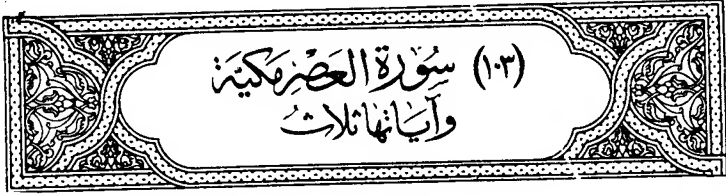 (١٠٣) سُورَة العَصْر مَكيّة
وَآيَاتهَا ثَلَاثُ